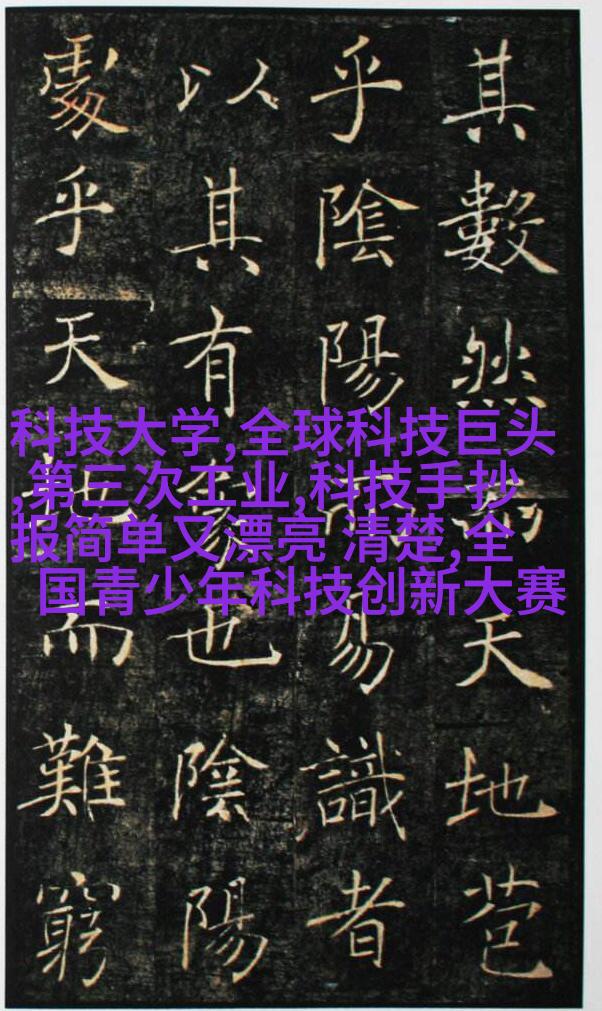 其數然而天地苞
乎陰陽而易識者
以其有象也陰陽
處乎天地而難窮
科技大学,全球科技巨头
,第三次工业,科技手抄
报简单又漂亮 清楚,全
国青少年科技创新大赛